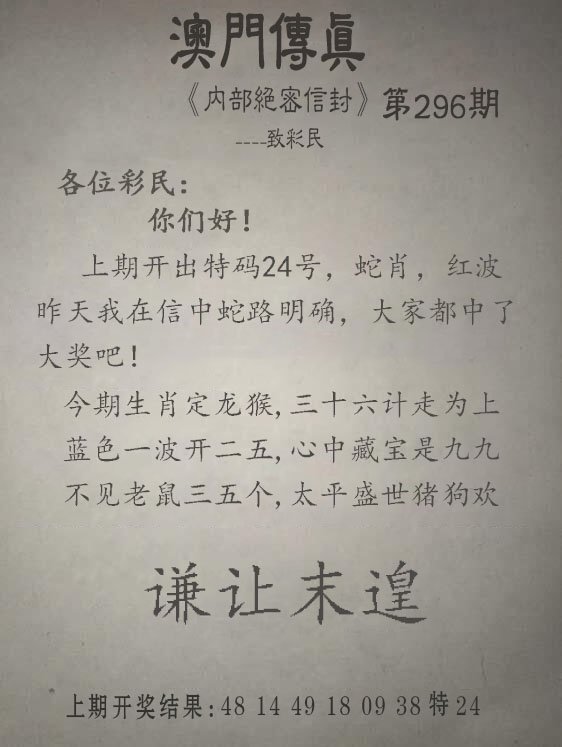 澳門傳眞
《内部絕密信封》第296期
----致彩民
各位彩民：
你们好！
上期开出特码24号，蛇肖，红波
昨天我在信中蛇路明确，大家都中了
大奖吧！
今期生肖定龙猴,三十六计走为上
蓝色一波开二五,心中藏宝是九九
不见老鼠三五个,太平盛世猪狗欢
谦让末遑
上期开奖结果:48 14 49 18 09 38 特 24